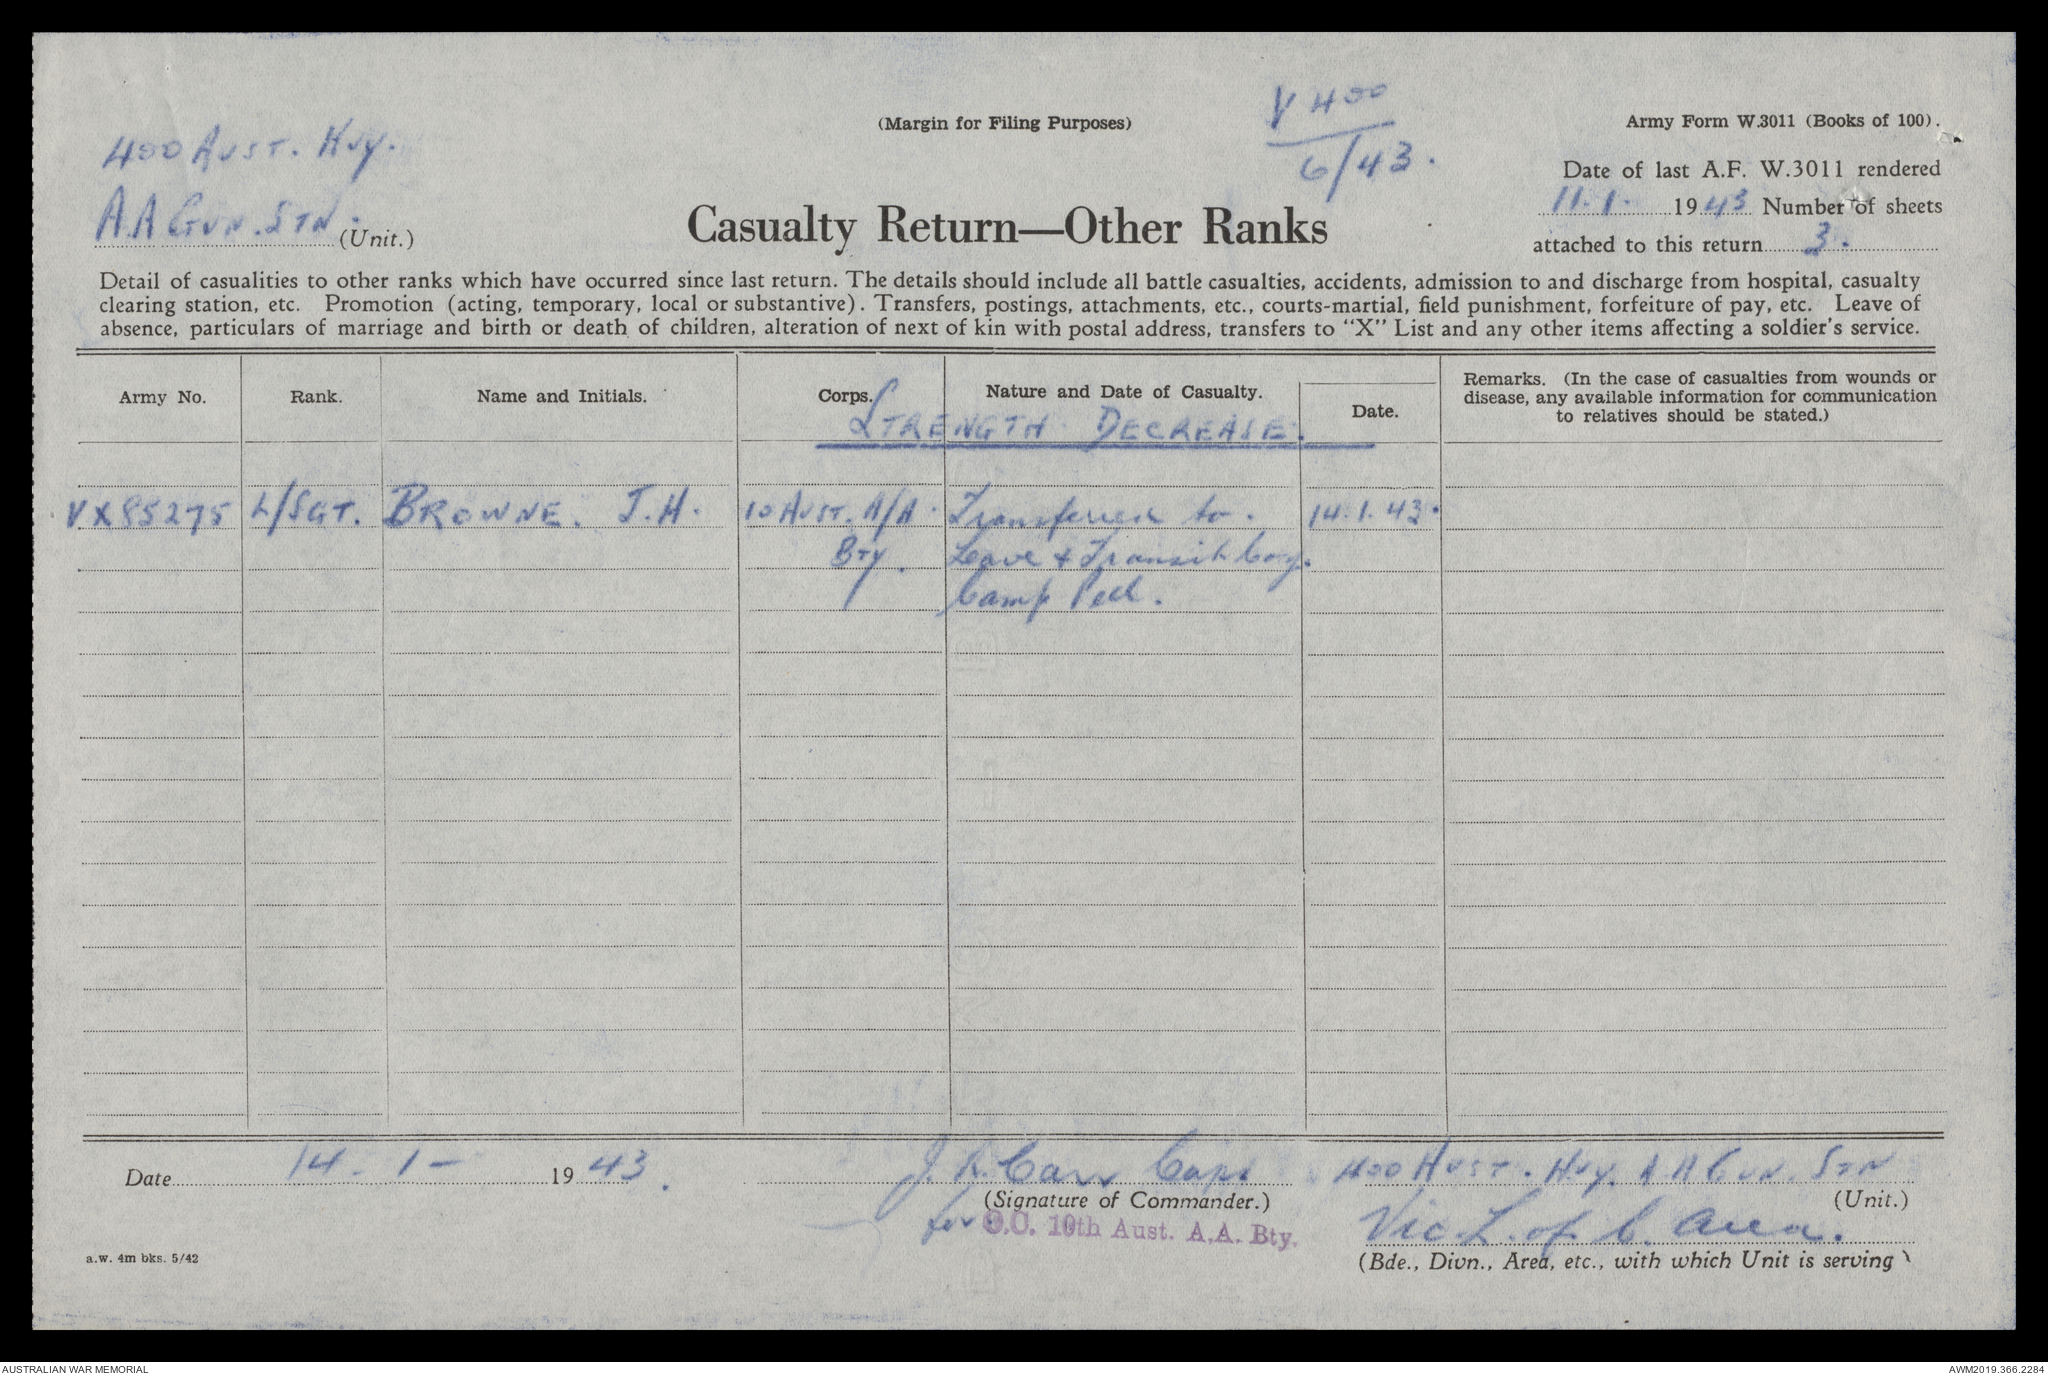 (Margin for Filing Purposes)
V 400
6/43.
Army Form W.3011 (Books of 100).
400 AUST. HVY.
A.A GUN. STN. (Unit.)
Date of last A.F. W.3011 rendered
11.1. 1943 Number of sheets
attached to this return 3.
Casualty Return—Other Ranks
Detail of casualities to other ranks which have occurred since last return. The details should include all battle casualties, accidents, admission to and discharge from hospital, casualty
clearing station, etc. Promotion (acting, temporary, local or substantive). Transfers, postings, attachments, etc., courts-martial, field punishment, forfeiture of pay, etc. Leave of
absence, particulars of marriage and birth or death of children, alteration of next of kin with postal address, transfers to "X" List and any other items affecting a soldier's service.
Army No. Rank. Name and Initials. Corps. Nature and Date of Casualty. Date. Remarks. (In the case of casualties from wounds or
disease, any available information for communication
to relatives should be stated.)
STRENGTH DECREASE.
VX85275 L/SGT. BROWNE. J.H. 10 AUST. A/A. Transferred to. 14.1.43.
Bty. Leave & Transit Coy.
Camp Pell.
Date 14 - 1 - 1943.
J. R. Carr Capt
400 AUST. HVY. A.A GUN. STN
(Signature of Commander.)
(Unit.)
for O.C. 10th Aust. A.A. Bty.
Vic. L. of C. Area.
a.w. 4m bks. 5/42
(Bde., Divn., Area, etc., with which Unit is serving
AUSTRALIAN WAR MEMORIAL
AWM2019.366.2284